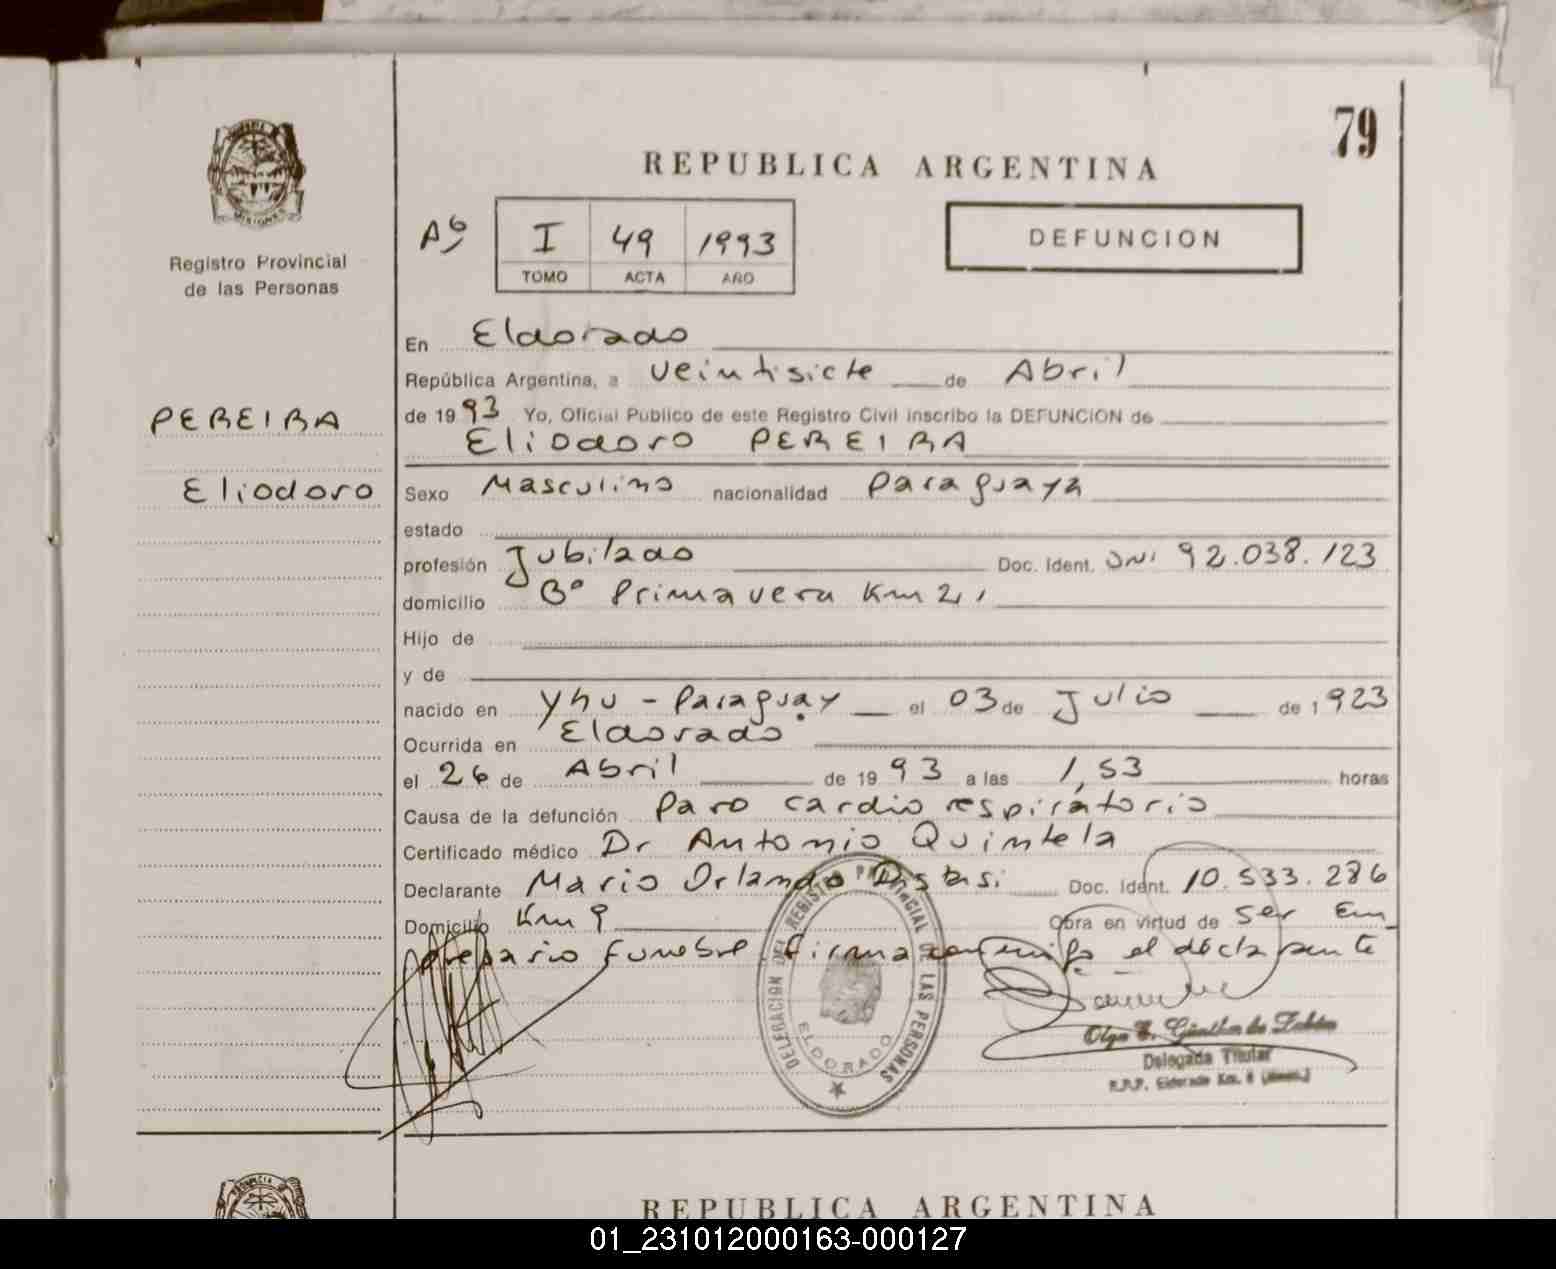 79
REPUBLICA ARGENTINA
I 49 1993
TOMO ACTA AÑO
DEFUNCION
Registro Provincial
de las Personas
MISIONES
PEREIRA
Eliodoro
En Eldorado
República Argentina, a veintisiete de Abril
de 1993 Yo, Oficial Público de este Registro Civil inscribo la DEFUNCION de
Eliodoro PEREIRA
Sexo Masculino nacionalidad Paraguaya
estado
profesión Jubilado Doc. Ident. DNI 92.038.123
domicilio Bº Primavera Km 2,
Hijo de
y de
nacido en Yhu - Paraguay el 03 de Julio de 1923
Ocurrida en Eldorado
el 26 de Abril de 1993 a las 1,53 horas
Causa de la defunción Paro cardio respiratorio
Certificado médico Dr Antonio Quintela
Declarante Mario Orlando Doc. Ident. 10.533.286
Domicilio Km 9 Obra en virtud de ser Em
presario funebre firma conmigo el declarante
DELEGACION DEL REGISTRO PROVINCIAL DE LAS PERSONAS
ELDORADO
Olga E. Günther de
Delegada Titular
R.P.P. Eldorado Km. 9
REPUBLICA ARGENTINA
01_231012000163-000127